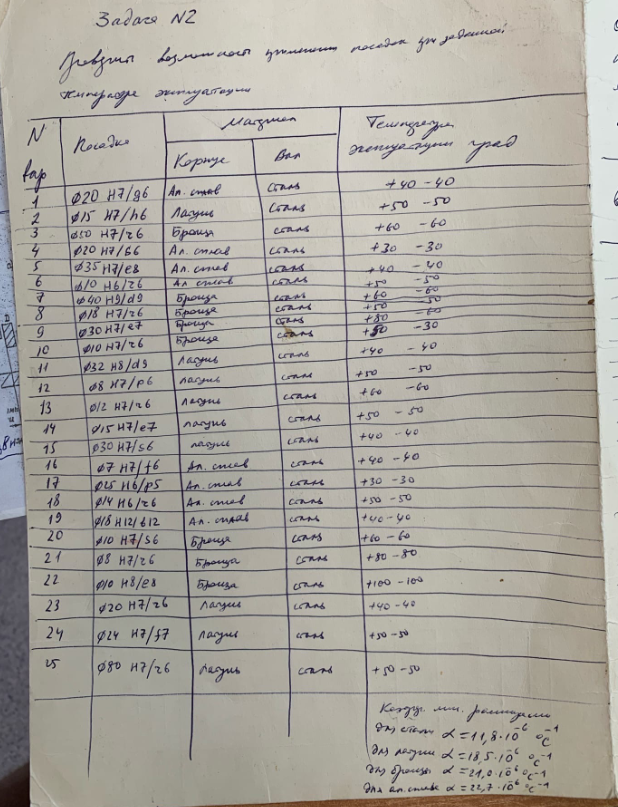 Задача N2
Проверить возможность применения посадок при заданной
температуре эксплуатации
N вар Посадка Материал Температура эксплуатации град
Корпус Вал
1 ø20 H7/g6 Ал. сплав сталь +40 -40
2 ø15 H7/h6 Латунь сталь +50 -50
3 ø50 H7/г6 Бронза сталь +60 -60
4 ø20 H7/s6 Ал. сплав сталь +30 -30
5 ø35 H7/e8 Ал. сплав сталь +40 -40
6 ø10 H6/г6 Ал сплав сталь +50 -50
7 ø40 H9/d9 Бронза сталь +60 -60
8 ø18 H7/г6 Бронза сталь +50 -50
9 ø30 H7/e7 Бронза сталь +80 -60
10 ø10 H7/г6 Бронза сталь -30
11 ø32 H8/d9 Латунь сталь +40 -40
12 ø8 H7/p6 Латунь сталь +50 -50
13 ø12 H7/г6 Латунь сталь +60 -60
14 ø15 H7/e7 латунь сталь +50 -50
15 ø30 H7/s6 латунь сталь +40 -40
16 ø7 H7/f6 Ал. сплав сталь +40 -40
17 ø25 H6/p5 Ал. сплав сталь +30 -30
18 ø14 H6/г6 Ал. сплав сталь +50 -50
19 ø18 H12/b12 Ал. сплав сталь +40 -40
20 ø10 H7/s6 Бронза сталь +60 -60
21 ø8 H7/г6 Бронза сталь +80 -80
22 ø10 H8/e8 Бронза сталь +100 -100
23 ø20 H7/г6 Латунь сталь +40 -40
24 ø24 H7/f7 Латунь сталь +50 -50
25 ø80 H7/г6 Латунь сталь +50 -50
Коэфф. лин. расширения
Для стали α = 11,8·10⁻⁶ °C⁻¹
Для латуни α = 18,5·10⁻⁶ °C⁻¹
Для бронзы α = 21,0·10⁻⁶ °C⁻¹
Для ал. сплава α = 22,7·10⁻⁶ °C⁻¹